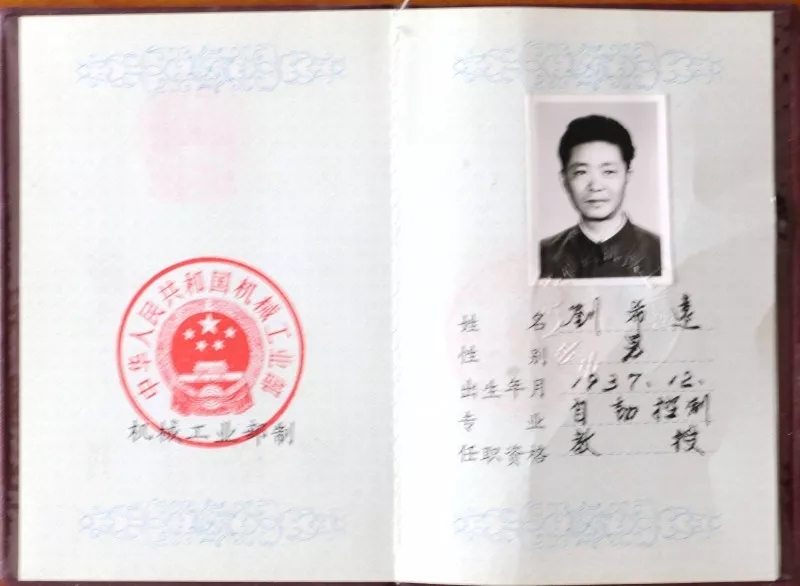 中华人民共和国机械工业部
机械工业部制
姓名 劉希遠
性别 男
出生年月 1937.12.
专业 自动控制
任职资格 教授